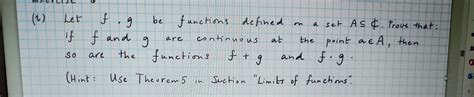 (2) Let f, g be functions defined on a set A ⊆ ₵. Prove that:
If f and g are continuous at the point a∈A, then
so are the functions f + g and f · g.
(Hint: Use Theorem 5 in Suction "Limits of functions".